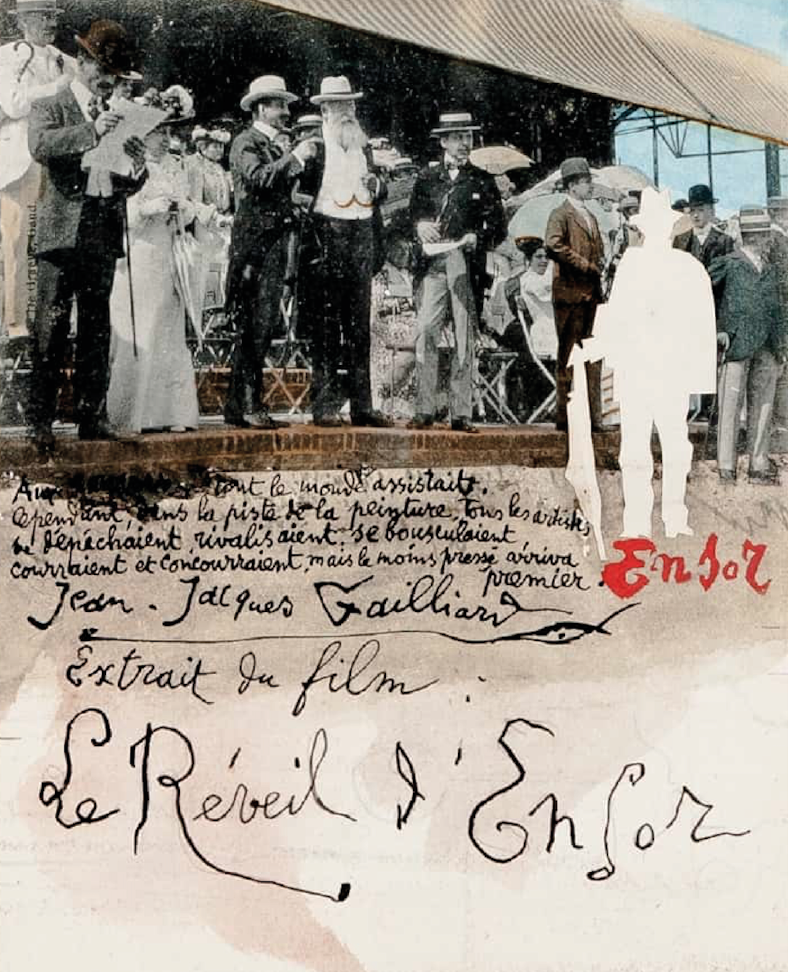 Aux tout le monde assistait.
Cependant, dans la piste de la peinture, tous les artistes
se dépêchaient, rivalisaient, se bousculaient,
courraient et concourraient, mais le moins pressé arriva
premier : Ensor
Jean-Jacques Gailliard
Extrait du film :
Le Réveil d'Ensor